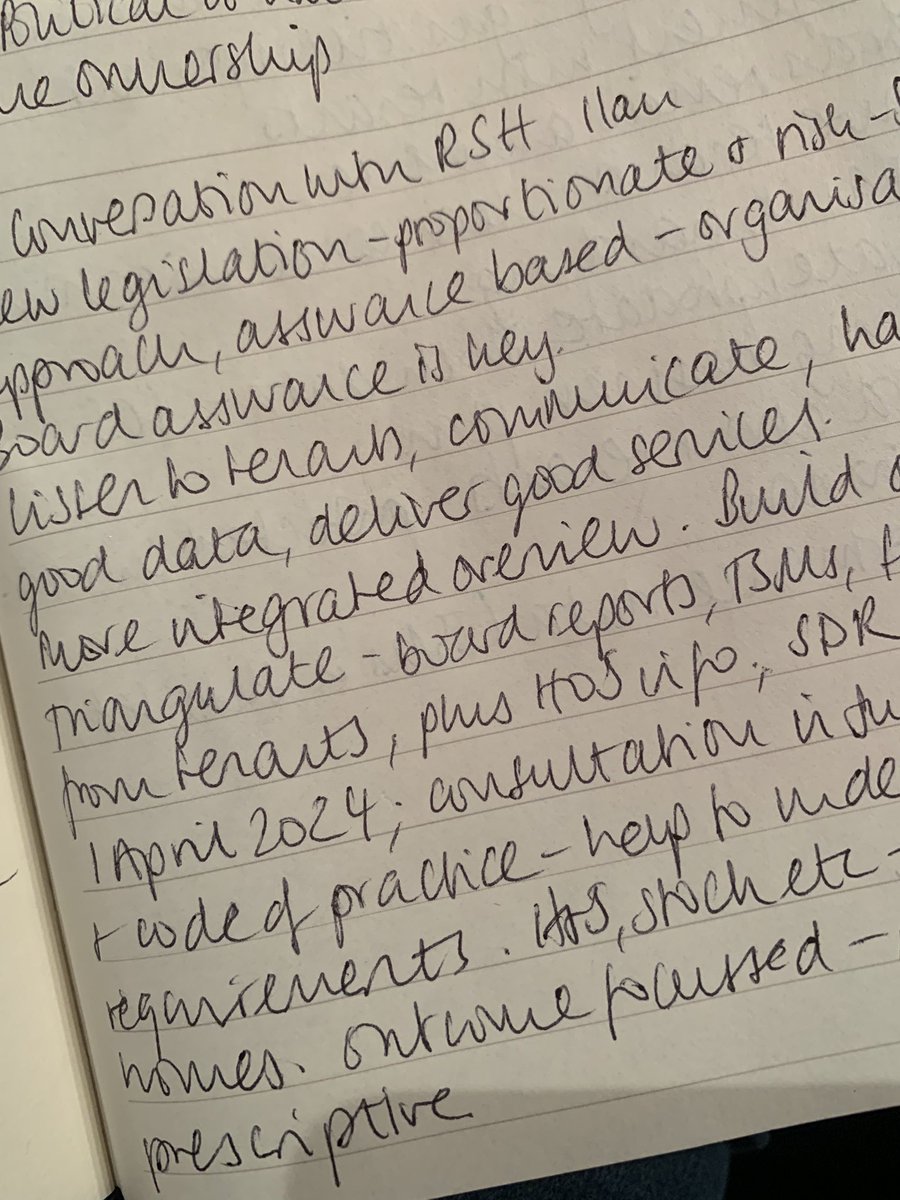 Political
ownership
Conversation with RSH 11am
ew legislation - proportionate & risk-
pproach, assurance based - organisa
Board assurance is key.
listen to tenants, communicate, ha
good data, deliver good services.
More integrated overview. Build
triangulate - board reports, TSMs,
from tenants, plus HOS info.; SDR
1 April 2024; consultation in
+ code of practice - help to unde
requirements. stock etc -
homes. Outcome focussed -
prescriptive